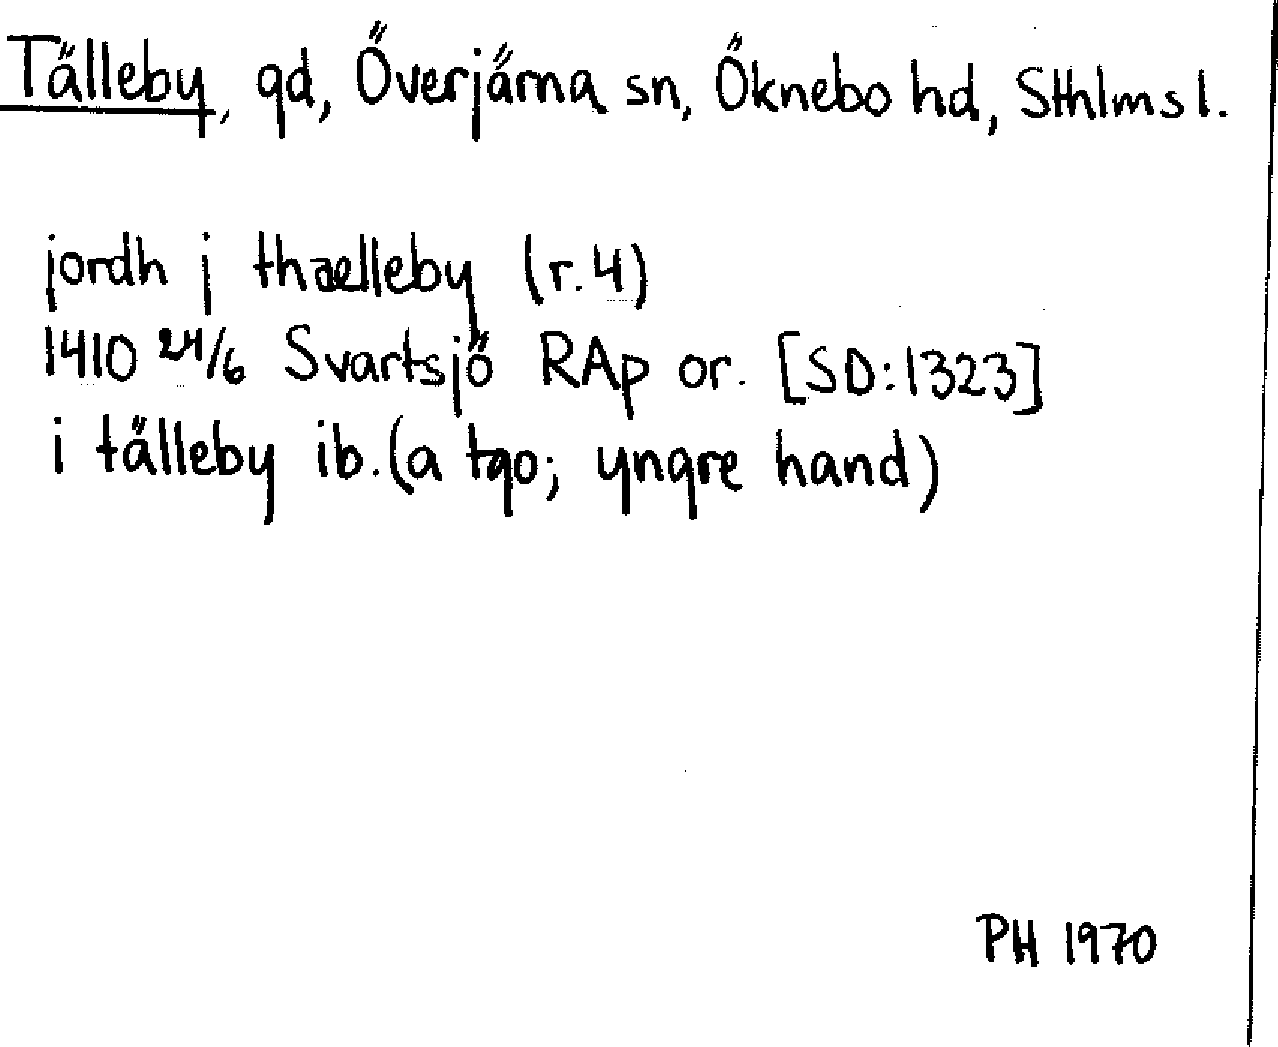 Tälleby, gd, Överjärna sn, Öknebo hd, Sthlms l.
jordh j thælleby (r.4)
1410 24/6 Svartsjö RAp or. [SD:1323]
i tälleby ib. (a tgo; yngre hand)
PH 1970